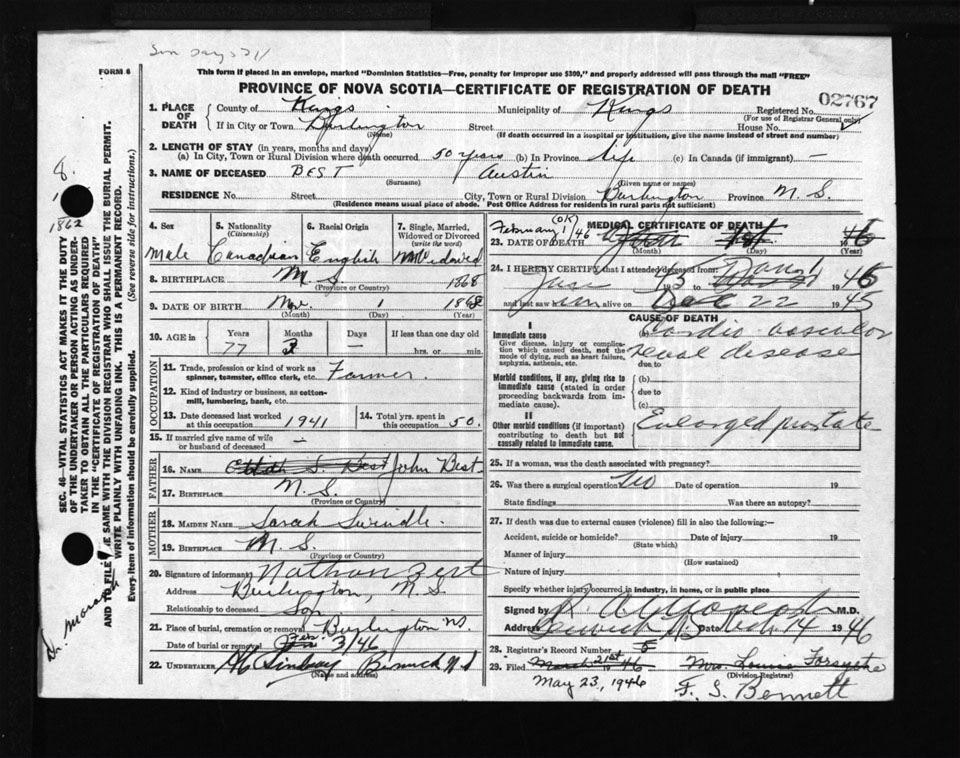 FORM 6
This form if placed in an envelope, marked "Dominion Statistics—Free, penalty for improper use $300," and properly addressed will pass through the mail "FREE"
PROVINCE OF NOVA SCOTIA—CERTIFICATE OF REGISTRATION OF DEATH
02767
1. PLACE OF DEATH County of Kings Municipality of Kings Registered No.
(For use of Registrar General only)
If in City or Town Burlington Street House No.
(Name) (If death occurred in a hospital or institution, give the name instead of street and number)
2. LENGTH OF STAY (in years, months and days)
(a) In City, Town or Rural Division where death occurred 50 years (b) In Province life (c) In Canada (if immigrant) —
3. NAME OF DECEASED BEST Austin
(Surname) (Given name or names)
RESIDENCE No. Street City, Town or Rural Division Burlington Province N. S.
(Residence means usual place of abode. Post Office Address for residents in rural parts not sufficient)
4. Sex 5. Nationality (Citizenship) 6. Racial Origin 7. Single, Married, Widowed or Divorced (write the word)
Male Canadian English Widowed
8. BIRTHPLACE N. S. 1868
(Province or Country)
9. DATE OF BIRTH Nov. 1 1868
(Month) (Day) (Year)
10. AGE in Years Months Days If less than one day old
77 3 — hrs. or min.
OCCUPATION
11. Trade, profession or kind of work as spinner, teamster, office clerk, etc. Farmer.
12. Kind of industry or business, as cotton-mill, lumbering, bank, etc.
13. Date deceased last worked at this occupation 1941 14. Total yrs. spent in this occupation 50.
15. If married give name of wife or husband of deceased —
FATHER
16. NAME John Best
17. BIRTHPLACE N. S.
(Province or Country)
MOTHER
18. MAIDEN NAME Sarah Swindle.
19. BIRTHPLACE N. S.
(Province or Country)
20. Signature of informant Nathan Best
Address Burlington, N. S.
Relationship to deceased Son
21. Place of burial, cremation or removal Burlington N.S.
Date of burial or removal Feb. 3/46
22. UNDERTAKER Lindsay Berwick N.S
(Name and address)
MEDICAL CERTIFICATE OF DEATH
February 1/46 (OK)
23. DATE OF DEATH 1946
(Month) (Day) (Year)
24. I HEREBY CERTIFY that I attended deceased from:
June 45 1945 to Jan 1946
and last saw him alive on Dec 22 1945
CAUSE OF DEATH
I
Immediate cause
Give disease, injury or complication which caused death, not the mode of dying, such as heart failure, asphyxia, asthenia, etc.
(a) Cardio-vascular renal disease
due to
Morbid conditions, if any, giving rise to immediate cause (stated in order proceeding backwards from immediate cause).
(b)
due to
(c)
II
Other morbid conditions (if important) contributing to death but not causally related to immediate cause.
Enlarged prostate
25. If a woman, was the death associated with pregnancy?
26. Was there a surgical operation No Date of operation 19
State findings Was there an autopsy?
27. If death was due to external causes (violence) fill in also the following:—
Accident, suicide or homicide? Date of injury 19
(State which)
Manner of injury
(How sustained)
Nature of injury
Specify whether injury occurred in industry, in home, or in public place
Signed by M.D.
Address Berwick NS Date Feb. 14 1946
28. Registrar's Record Number 5
29. Filed March 21st 1946 Mrs. Louise Forsythe
(Division Registrar)
May 23, 1946 F. S. Bennett
SEC. 46—VITAL STATISTICS ACT MAKES IT THE DUTY OF THE UNDERTAKER OR PERSON ACTING AS UNDERTAKER TO OBTAIN ALL THE PARTICULARS REQUIRED IN THE "CERTIFICATE OF REGISTRATION OF DEATH" AND TO FILE THE SAME WITH THE DIVISION REGISTRAR WHO SHALL ISSUE THE BURIAL PERMIT.
WRITE PLAINLY WITH UNFADING INK. THIS IS A PERMANENT RECORD.
Every item of information should be carefully supplied. (See reverse side for instructions.)
8.
1862